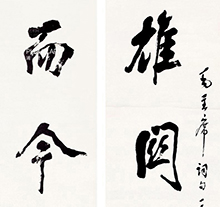 毛主席词句
雄関
而今